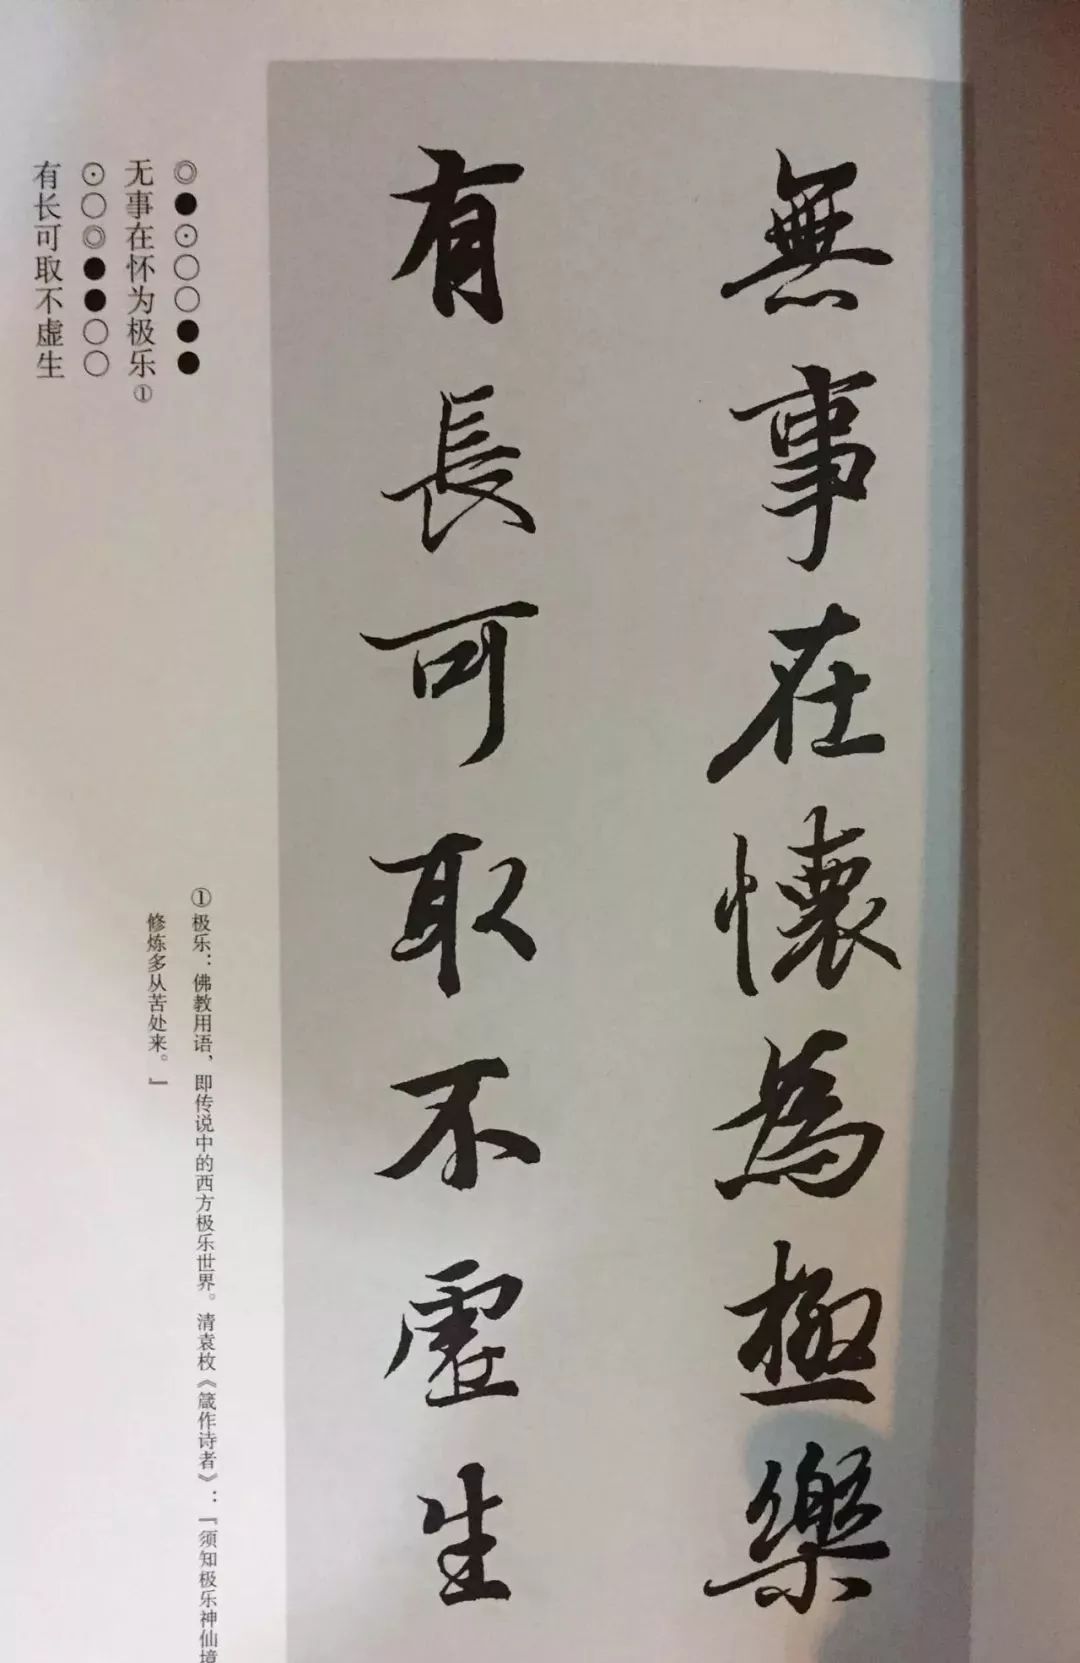 無事在懷為極樂
有長可取不虛生
◎●⊙○○●●
无事在怀为极乐①
⊙○◎●●○○
有长可取不虚生
①极乐：佛教用语，即传说中的西方极乐世界。清袁枚《箴作诗者》：「须知极乐神仙境
修炼多从苦处来。」